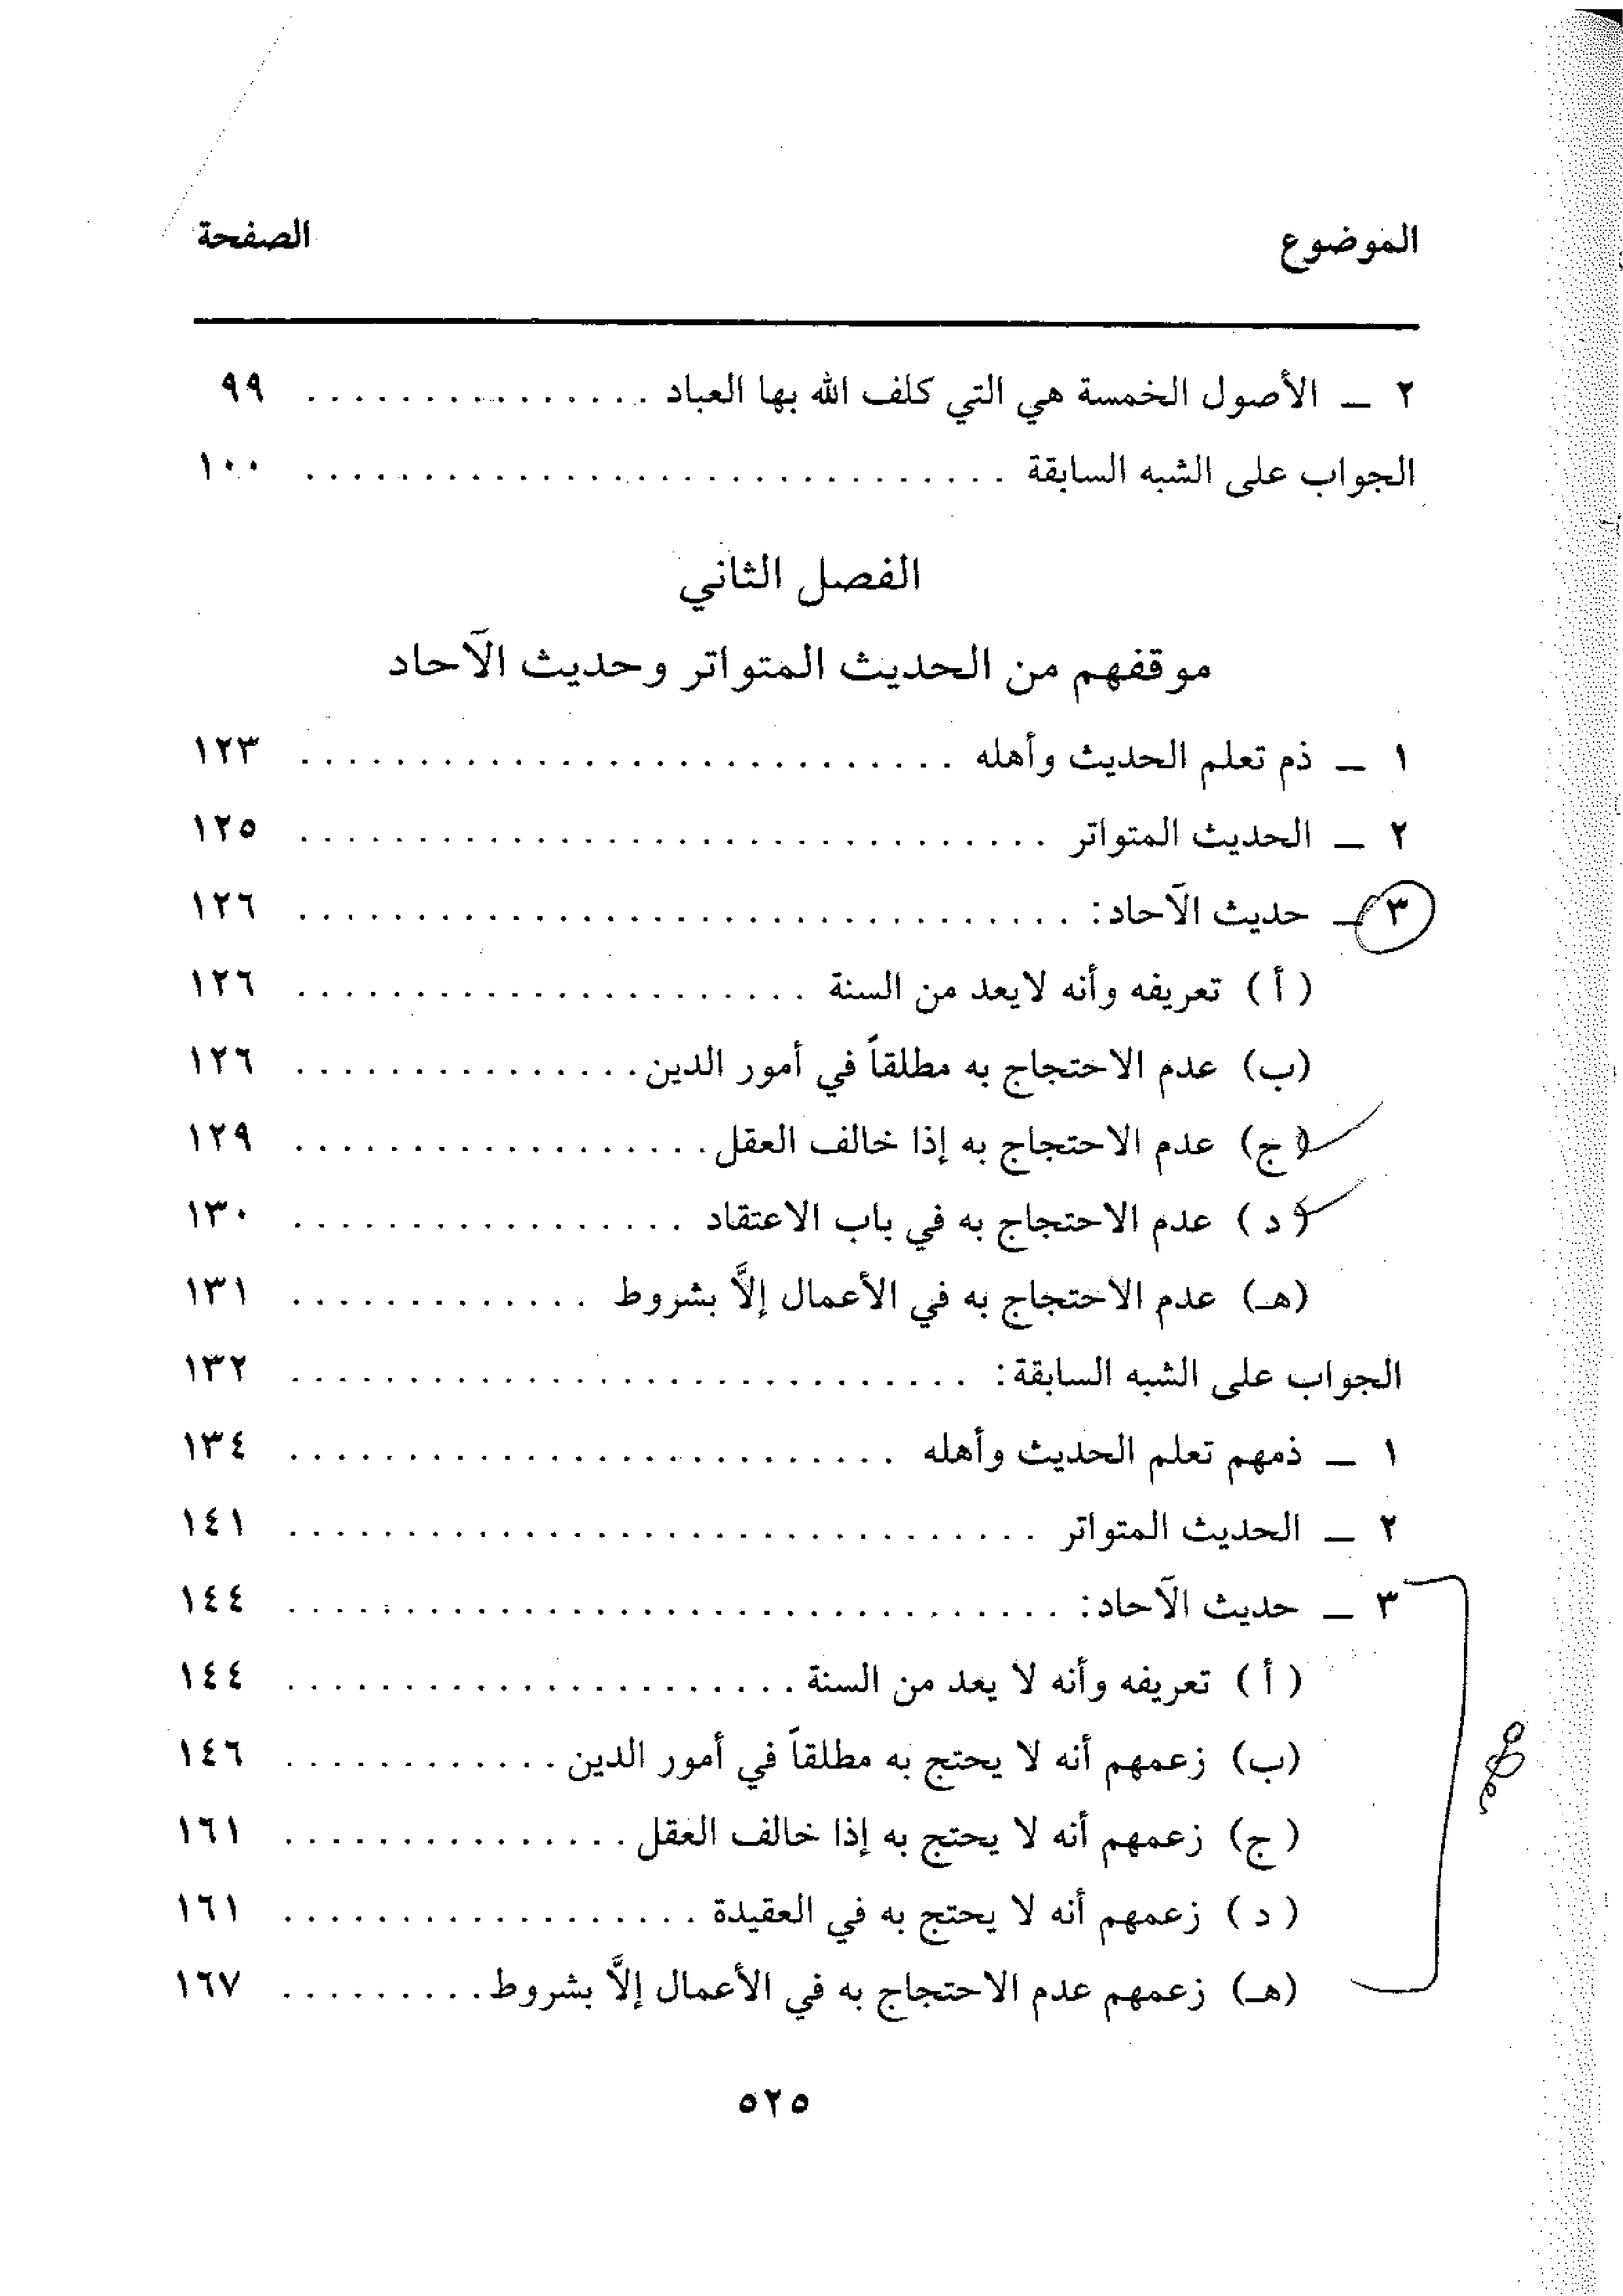 الموضوع الصفحة
٢ ـ الأصول الخمسة هي التي كلف الله بها العباد . . . . . . . . . . . . . . . ٩٩
الجواب على الشبه السابقة . . . . . . . . . . . . . . . . . . . . . . . . . . . . . . ١٠٠
الفصل الثاني
موقفهم من الحديث المتواتر وحديث الآحاد
١ ـ ذم تعلم الحديث وأهله . . . . . . . . . . . . . . . . . . . . . . . . . . . . ١٢٣
٢ ـ الحديث المتواتر . . . . . . . . . . . . . . . . . . . . . . . . . . . . . . . . ١٢٥
٣ ـ حديث الآحاد: . . . . . . . . . . . . . . . . . . . . . . . . . . . . . . . . . ١٢٦
( أ ) تعريفه وأنه لايعد من السنة . . . . . . . . . . . . . . . . . . . . . . ١٢٦
(ب) عدم الاحتجاج به مطلقاً في أمور الدين . . . . . . . . . . . . . . . ١٢٦
(ج) عدم الاحتجاج به إذا خالف العقل . . . . . . . . . . . . . . . . . . ١٢٩
( د ) عدم الاحتجاج به في باب الاعتقاد . . . . . . . . . . . . . . . . . ١٣٠
(هـ) عدم الاحتجاج به في الأعمال إلاَّ بشروط . . . . . . . . . . . . . ١٣١
الجواب على الشبه السابقة: . . . . . . . . . . . . . . . . . . . . . . . . . . . . . ١٣٢
١ ـ ذمهم تعلم الحديث وأهله . . . . . . . . . . . . . . . . . . . . . . . . . . ١٣٤
٢ ـ الحديث المتواتر . . . . . . . . . . . . . . . . . . . . . . . . . . . . . . . . ١٤١
٣ ـ حديث الآحاد: . . . . . . . . . . . . . . . . . . . . . . . . . . . . . . . . . ١٤٤
( أ ) تعريفه وأنه لا يعد من السنة . . . . . . . . . . . . . . . . . . . . . . ١٤٤
(ب) زعمهم أنه لا يحتج به مطلقاً في أمور الدين . . . . . . . . . . . . ١٤٦
(ج) زعمهم أنه لا يحتج به إذا خالف العقل . . . . . . . . . . . . . . . ١٦١
( د ) زعمهم أنه لا يحتج به في العقيدة . . . . . . . . . . . . . . . . . . ١٦١
(هـ) زعمهم عدم الاحتجاج به في الأعمال إلاَّ بشروط . . . . . . . . . ١٦٧
٥٢٥